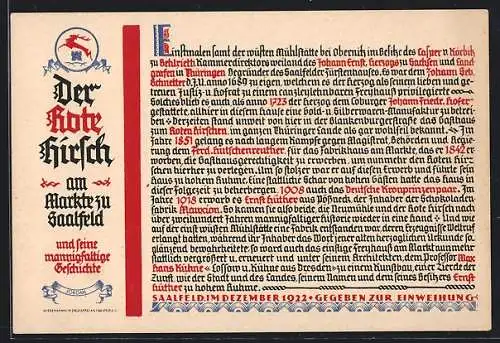 Der
Rote
Hirsch
am
Markte zu
Saalfeld
und seine
mannigfaltige
Geschichte
Einstmalen samt der wüsten Mühlstätte bei Obernitz im Besitze des Casper v. Körbitz
zu Sehlrieth Kammerdirektors weiland des Johann Ernst, Herzogs zu Sachsen und Land
grafen in Thüringen Begründer des Saalfelder Fürstenhauses. Es war dem Johann Seb.
Schnetter d.J. u. anno 1689 zu eigen, welchem es der Herzog als seinem lieben und ge-
treuen Justiz- u. Hofrat zu einem canzleylehnbaren Freyhaus privilegierte
Solches blieb es auch als anno 1723 der Herzog dem Coburger Johann Friedr. Hofer
gestattete, allhier in diesem Hause eine Gold- u. Silberwarn-Manufaktur zu betrei-
ben Derzeiten stand unweit von hier in der Blankenburgerstraße das Gasthaus
zum Roten Hirschen, im ganzen Thüringer Lande als gar wohlfeil bekannt. Im
Jahre 1851 gelang es nach langem Kampfe gegen Magistrat, Behörden und Regie-
rung dem Ferd. Lutschenreuther, für das Fabrikhaus am Markte, das es 1842 ge-
worden, die Gasthausgerechtigkeit zu erwerben, um nunmehr den Roten Hir-
schen hierher zu verlegen. Um so stolzer war er auf diesen Erwerb und führte sein
Haus zu hohem Ruhme. Eine stattliche Schar von hohen Gästen hatte das Haus in
dieser Folgezeit zu beherbergen, 1908 auch das Deutsche Kronprinzenpaar. Im
Jahre 1918 erwarb es Ernst Hüther aus Pößneck, der Inhaber der Schokoladen-
fabrik Mauxion. So kamen sie also beide, der Neumühle und der Rote Hirsch nach
über zweihundert Jahren mannigfaltiger Historie wieder in eine Hand Und wie
auf der einst wüsten Mühlstätte eine Fabrik entstanden war, deren Erzeugnisse Weltruf
erlangt hatten, während ihr Inhaber das Wort jener alten herzoglichen Urkunde so
glänzend bewahrheitete, so ward auch das einstige Freyhaus am Markt nunmehr
stattlich vergrößert u. erneuert und unter seinem Architekten, dem Professor Max
Hans Kühne Lossow u. Kühne aus Dresden zu einem Kunstbau, einer Zierde der
Zunft, wie der Stadt und des Landes, seinem Namen und dem seines Besitzers Ernst
Hüther zu hohem Ruhme.
SAALFELD, IM DEZEMBER 1922 • GEGEBEN ZUR EINWEIHUNG